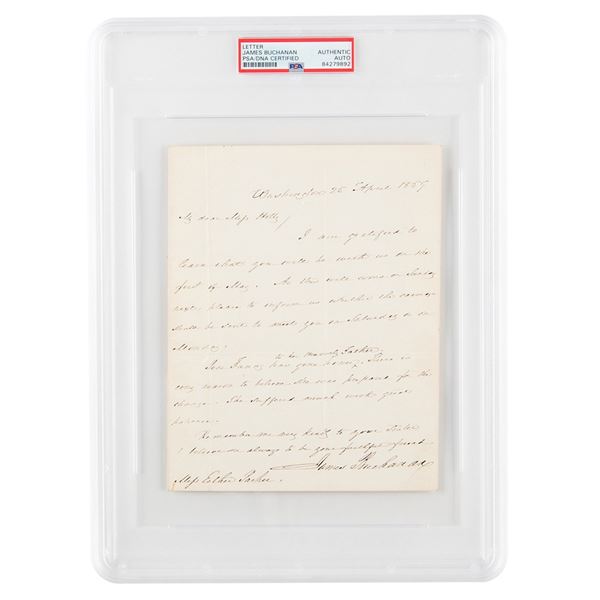 LETTER
JAMES BUCHANAN
PSA/DNA CERTIFIED
AUTHENTIC
AUTO
84279892
PSA
Washington 25 April 1859
My dear Miss Hetty/
I am gratified to
learn that you will be with us on the
first of May. As this will come on Sunday
next, please to inform us whether the carriage
shall be sent to meet you on Saturday or on
Monday.
Poor Fanny has gone home, to her Heavenly Father. There is
every reason to believe she was prepared for the
change. She suffered much with great
patience.
Remember me very kindly to your sister
& believe me always to be your faithful friend
James Buchanan
Miss Esther Parker.